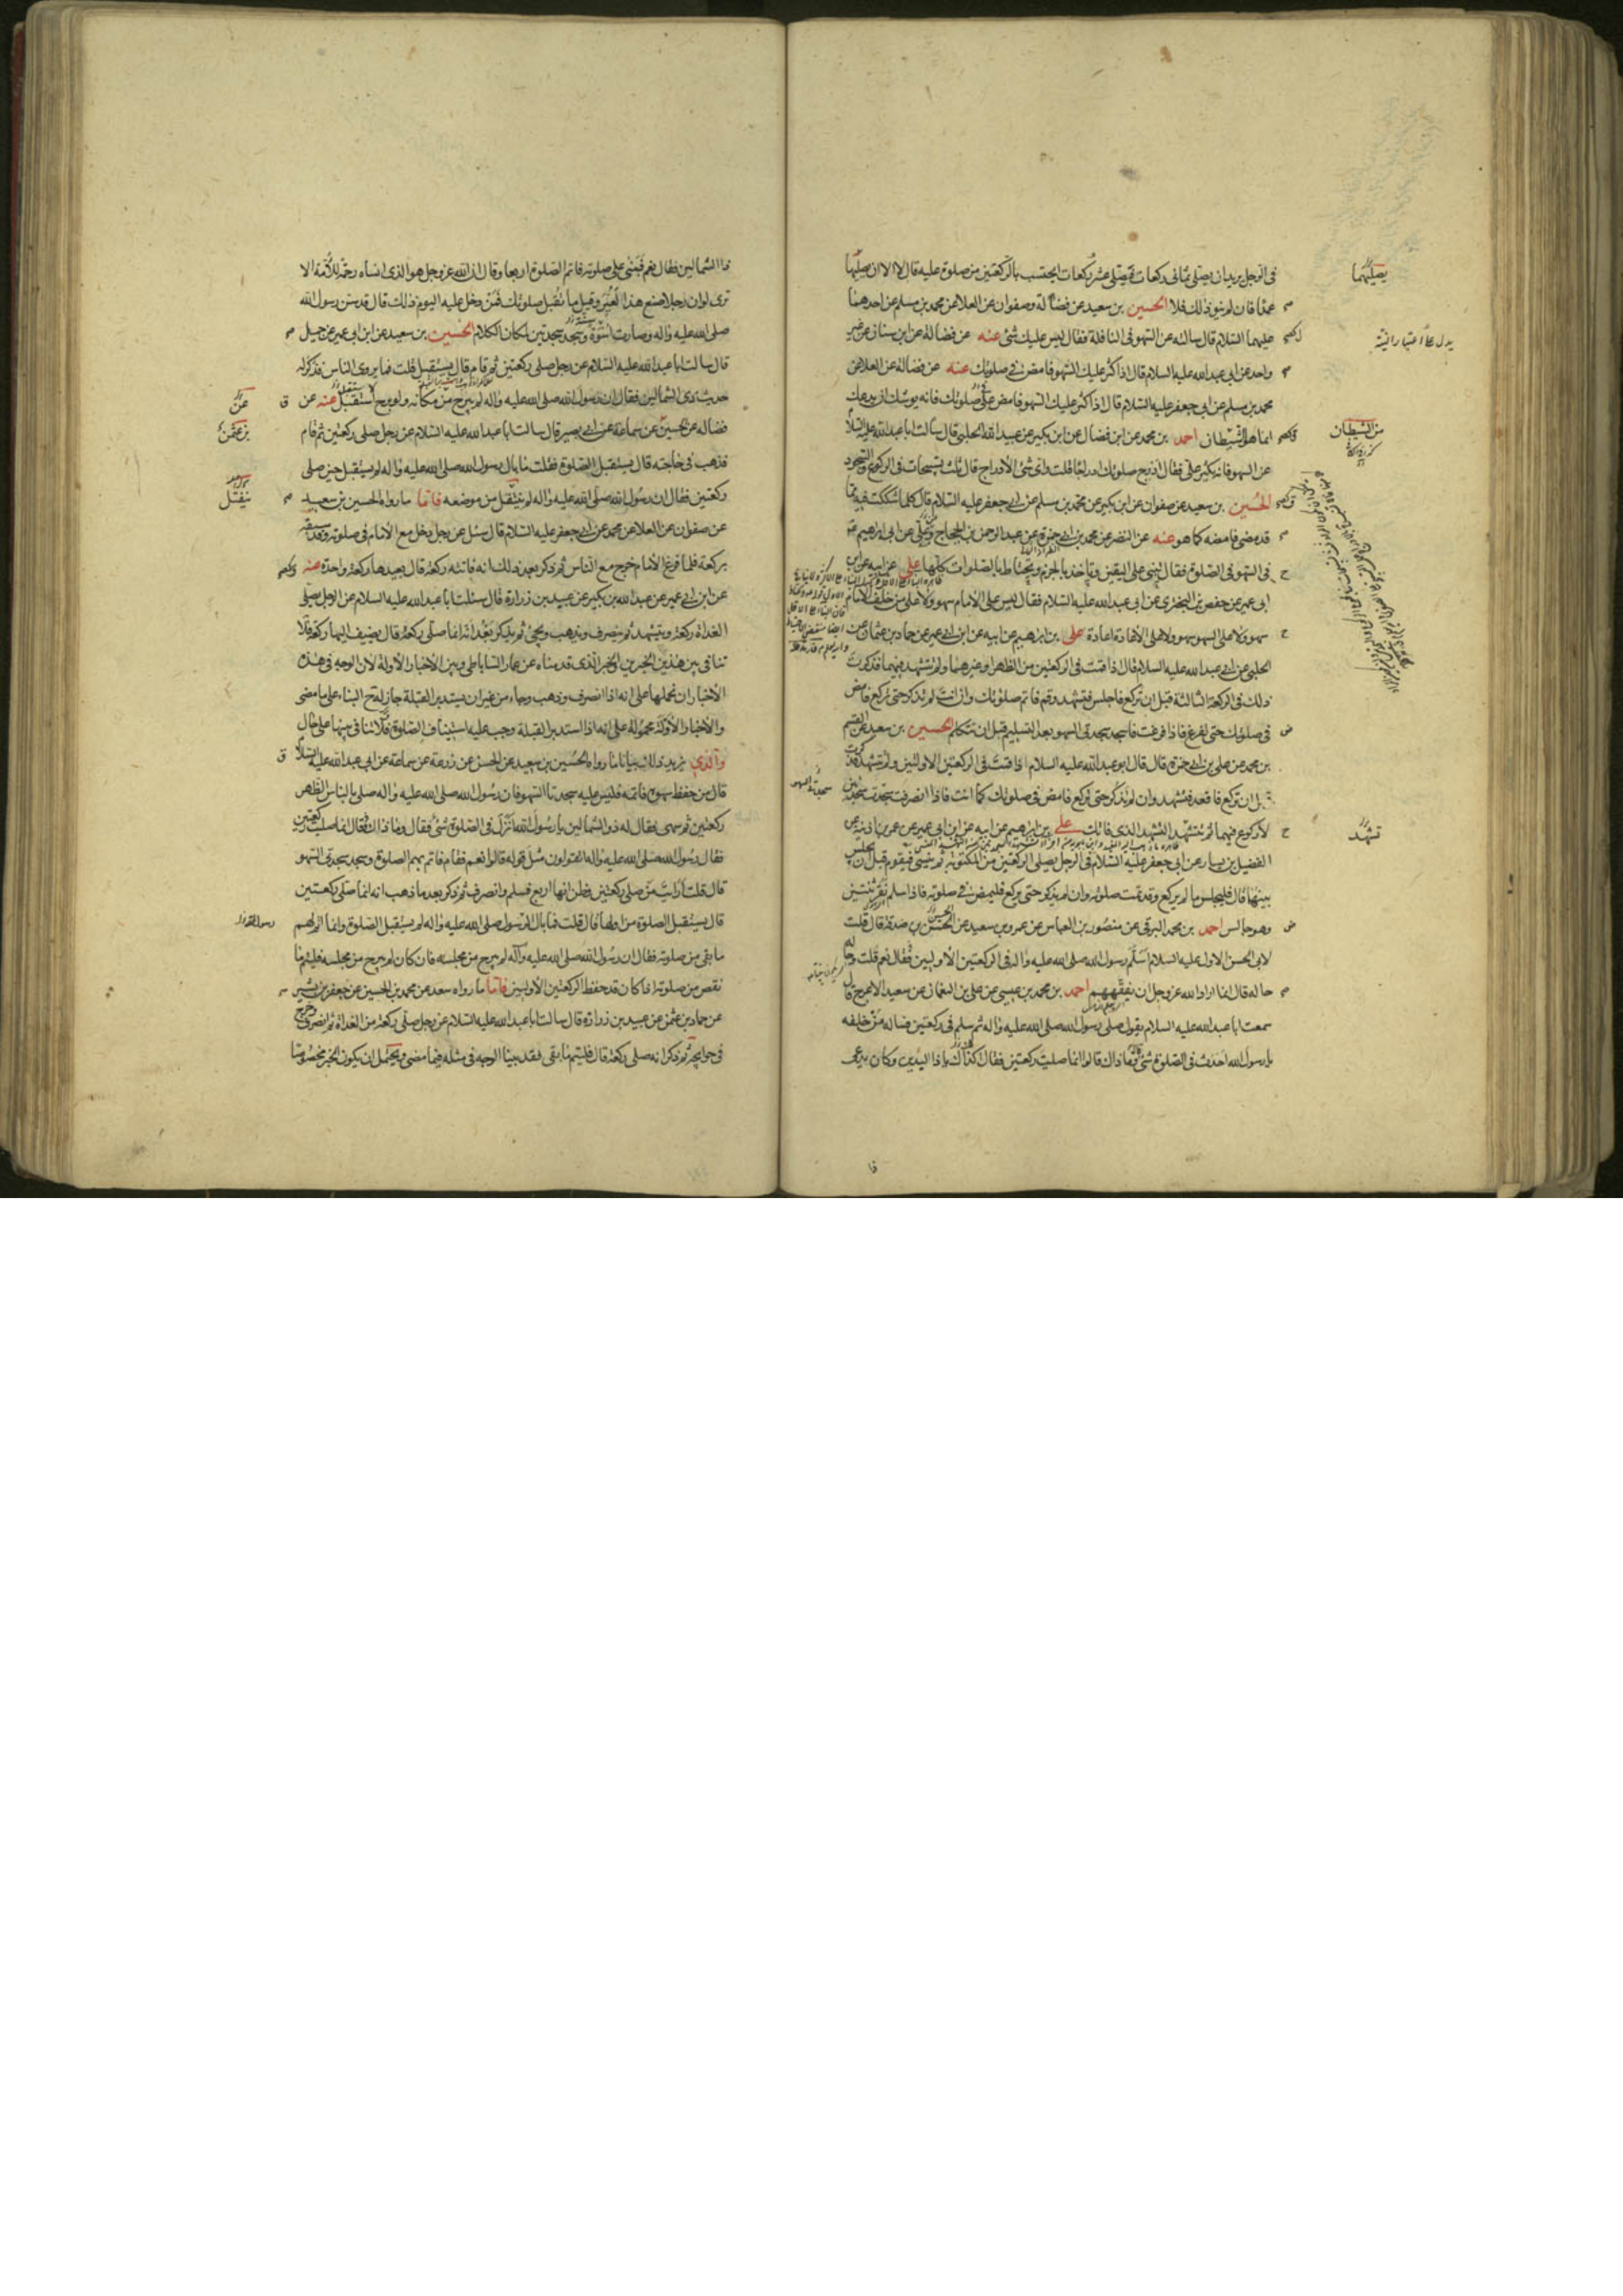 في الرجل يريد ان يصلي ثماني ركعات فيصلي عشر ركعات ايحتسب بالركعتين من صلوة عليه قال لا الا ان يصليها
عمدا فان لم ينو ذلك فلا الحسين بن سعيد عن فضالة وصفوان عن العلا عن محمد بن مسلم عن احدهما
عليهما السلام قال سالته عن السهو في النافلة فقال ليس عليك شئ عنه عن فضالة عن ابن سنان عن غير
واحد عن ابي عبد الله عليه السلام قال اذا كثر عليك السهو فامض في صلوتك عنه عن فضالة عن العلا عن
محمد بن مسلم عن ابي جعفر عليه السلام قال اذا كثر عليك السهو فامض على صلوتك فانه يوشك ان يدعك
انما هو الشيطان احمد بن محمد عن ابن فضال عن ابن بكير عن عبيد الله الحلبي قال سالت ابا عبد الله عليه السلام
عن السهو فانه يكثر علي فقال ادرج صلوتك ادراجا قلت واي شئ الادراج قال ثلث تسبيحات في الركوع والسجود
الحسين بن سعيد عن صفوان عن ابن بكير عن محمد بن مسلم عن ابي جعفر عليه السلام قال كلما شككت فيه مما
قد مضى فامضه كما هو عنه عن النضر عن محمد بن ابي حمزة عن عبد الرحمن بن الحجاج وعلي عن ابي ابراهيم
في السهو في الصلوة فقال تبني على اليقين وتاخذ بالجزم وتحتاط بالصلوات كلها علي عن ابيه عن ابن
ابي عمير عن حفص بن البختري عن ابي عبد الله عليه السلام فقال ليس على الامام سهو ولا على من خلف الامام
سهو ولا على السهو سهو ولا على الاعادة اعادة علي بن ابرهيم عن ابيه عن ابن ابي عمير عن حماد بن عثمان عن
الحلبي عن ابي عبد الله عليه السلام قال اذا قمت في الركعتين من الظهر او غيرهما ولم تتشهد فيهما فذكرت
ذلك في الركعة الثالثة قبل ان تركع فاجلس فتشهد وقم فاتم صلوتك وان انت لم تذكر حتى تركع فامض
في صلوتك حتى تفرغ فاذا فرغت فاسجد سجدتي السهو بعد التسليم قبل ان تتكلم الحسين بن سعيد عن القسم
بن محمد عن علي بن ابي حمزة قال قال ابو عبد الله عليه السلام اذا قمت في الركعتين الاولتين ولم تتشهد فذكرت
قبل ان تركع فاقعد فتشهد وان لم تذكر حتى تركع فامض في صلوتك كما انت فاذا انصرفت سجدت سجدتين
لا ركوع فيهما ثم تتشهد التشهد الذي فاتك علي بن ابرهيم عن ابيه عن ابن ابي عمير عن عمر بن اذينة عن
الفضيل بن يسار عن ابي جعفر عليه السلام في الرجل يصلي الركعتين من المكتوبة ثم ينسى فيقوم قبل ان يجلس
بينهما قال فليجلس ما لم يركع وقد تمت صلوته وان لم يذكر حتى يركع فليمض في صلوته فاذا سلم نقر ثنتين
وهو جالس احمد بن محمد البرقي عن منصور بن العباس عن عمرو بن سعيد عن الحسن بن صدقة قال قلت
لابي الحسن الاول عليه السلام اسلم رسول الله صلى الله عليه واله في الركعتين الاوليين فقال نعم قلت وحاله
حاله قال انما اراد الله عز وجل ان يفقههم احمد بن محمد بن عيسى عن علي بن النعمان عن سعيد الاعرج قال
سمعت ابا عبد الله عليه السلام يقول صلى رسول الله صلى الله عليه واله ثم سلم في ركعتين فساله من خلفه
يا رسول الله احدث في الصلوة شئ قال وما ذاك قالوا انما صليت ركعتين فقال اكذاك يا ذا اليدين وكان يدعى
فا
يصليهما
يدل على اعتبار النية
من الشيطان
تشهد
سجدتا السهو
ذا الشمالين فقال نعم فبنى على صلوته فاتم الصلوة اربعا وقال ان الله عز وجل هو الذي انساه رحمة للامة الا
ترى لو ان رجلا صنع هذا لعير وقيل ما تقبل صلوتك فمن دخل عليه اليوم ذلك قال قد سن رسول الله
صلى الله عليه واله وصارت اسوة وسجد سجدتين لمكان الكلام الحسين بن سعيد عن ابن ابي عمير عن جميل
قال سالت ابا عبد الله عليه السلام عن رجل صلى ركعتين ثم قام قال يستقبل قلت فما يروي الناس فذكر له
حديث ذي الشمالين فقال ان رسول الله صلى الله عليه واله لم يبرح من مكانه ولو برح استقبل عنه عن
فضاله عن حسين عن سماعة عن ابي بصير قال سالت ابا عبد الله عليه السلام عن رجل صلى ركعتين ثم قام
فذهب في حاجته قال يستقبل الصلوة فقلت ما بال رسول الله صلى الله عليه واله لم يستقبل حين صلى
ركعتين فقال ان رسول الله صلى الله عليه واله لم ينتقل من موضعه فاما ما رواه الحسين بن سعيد
عن صفوان عن العلا عن محمد عن ابي جعفر عليه السلام قال سئل عن رجل دخل مع الامام في صلوته وقد سبقه
بركعة فلما فرغ الامام خرج مع الناس ثم ذكر بعد ذلك انه فاتته ركعة قال يعيدها ركعة واحدة عنه
عن ابن ابي عمير عن عبد الله بن بكير عن عبيد بن زرارة قال سئلت ابا عبد الله عليه السلام عن الرجل يصلي
الغداة ركعة ويتشهد ثم ينصرف ويذهب ويجئ ثم يذكر بعد انه انما صلى ركعة قال يضيف اليها ركعة فلا
تنافي بين هذين الخبرين والخبر الذي قدمناه عن عمار الساباطي وبين الاخبار الاولة لان الوجه في هذه
الاخبار ان نحملها على انه اذا انصرف وذهب وجاء من غير ان يستدبر القبلة جاز له ح البناء على ما مضى
والاخبار الاولة محمولة على انه اذا استدبر القبلة وجب عليه استيناف الصلوة فلا تنافي بينها على حال
والذي يزيد ذلك بيانا ما رواه الحسين بن سعيد عن الحسن عن زرعة عن سماعة عن ابي عبد الله عليه السلام
قال من حفظ سهوه فاتمه فليس عليه سجدتا السهو فان رسول الله صلى الله عليه واله صلى بالناس الظهر
ركعتين ثم سهى فقال له ذو الشمالين يا رسول الله انزل في الصلوة شئ فقال وما ذاك قال انما صليت ركعتين
فقال رسول الله صلى الله عليه واله اتقولون مثل قوله قالوا نعم فقام فاتم بهم الصلوة وسجد سجدتي السهو
قال قلت ارايت من صلى ركعتين وظن انها اربع فسلم وانصرف ثم ذكر بعد ما ذهب انه انما صلى ركعتين
قال يستقبل الصلوة من اولها قال قلت فما بال الرسول صلى الله عليه واله لم يستقبل الصلوة وانما اتم لهم
ما بقي من صلوته فقال ان رسول الله صلى الله عليه واله لم يبرح من مجلسه فان كان لم يبرح من مجلسه فليتم ما
نقص من صلوته اذا كان قد حفظ الركعتين الاوليين فاما ما رواه سعد عن محمد بن الحسين عن جعفر بن بشير
عن حماد بن عثمن عن عبيد بن زرارة قال سالت ابا عبد الله عليه السلام عن رجل صلى ركعة من الغداة ثم انصرف وخرج
في حوايجه ثم ذكر انه صلى ركعة قال فليتم ما بقي فقد بينا الوجه في مثله فيما مضى ويحتمل ان يكون الخبر مخصوصا
عن
ينفتل
رسول الله